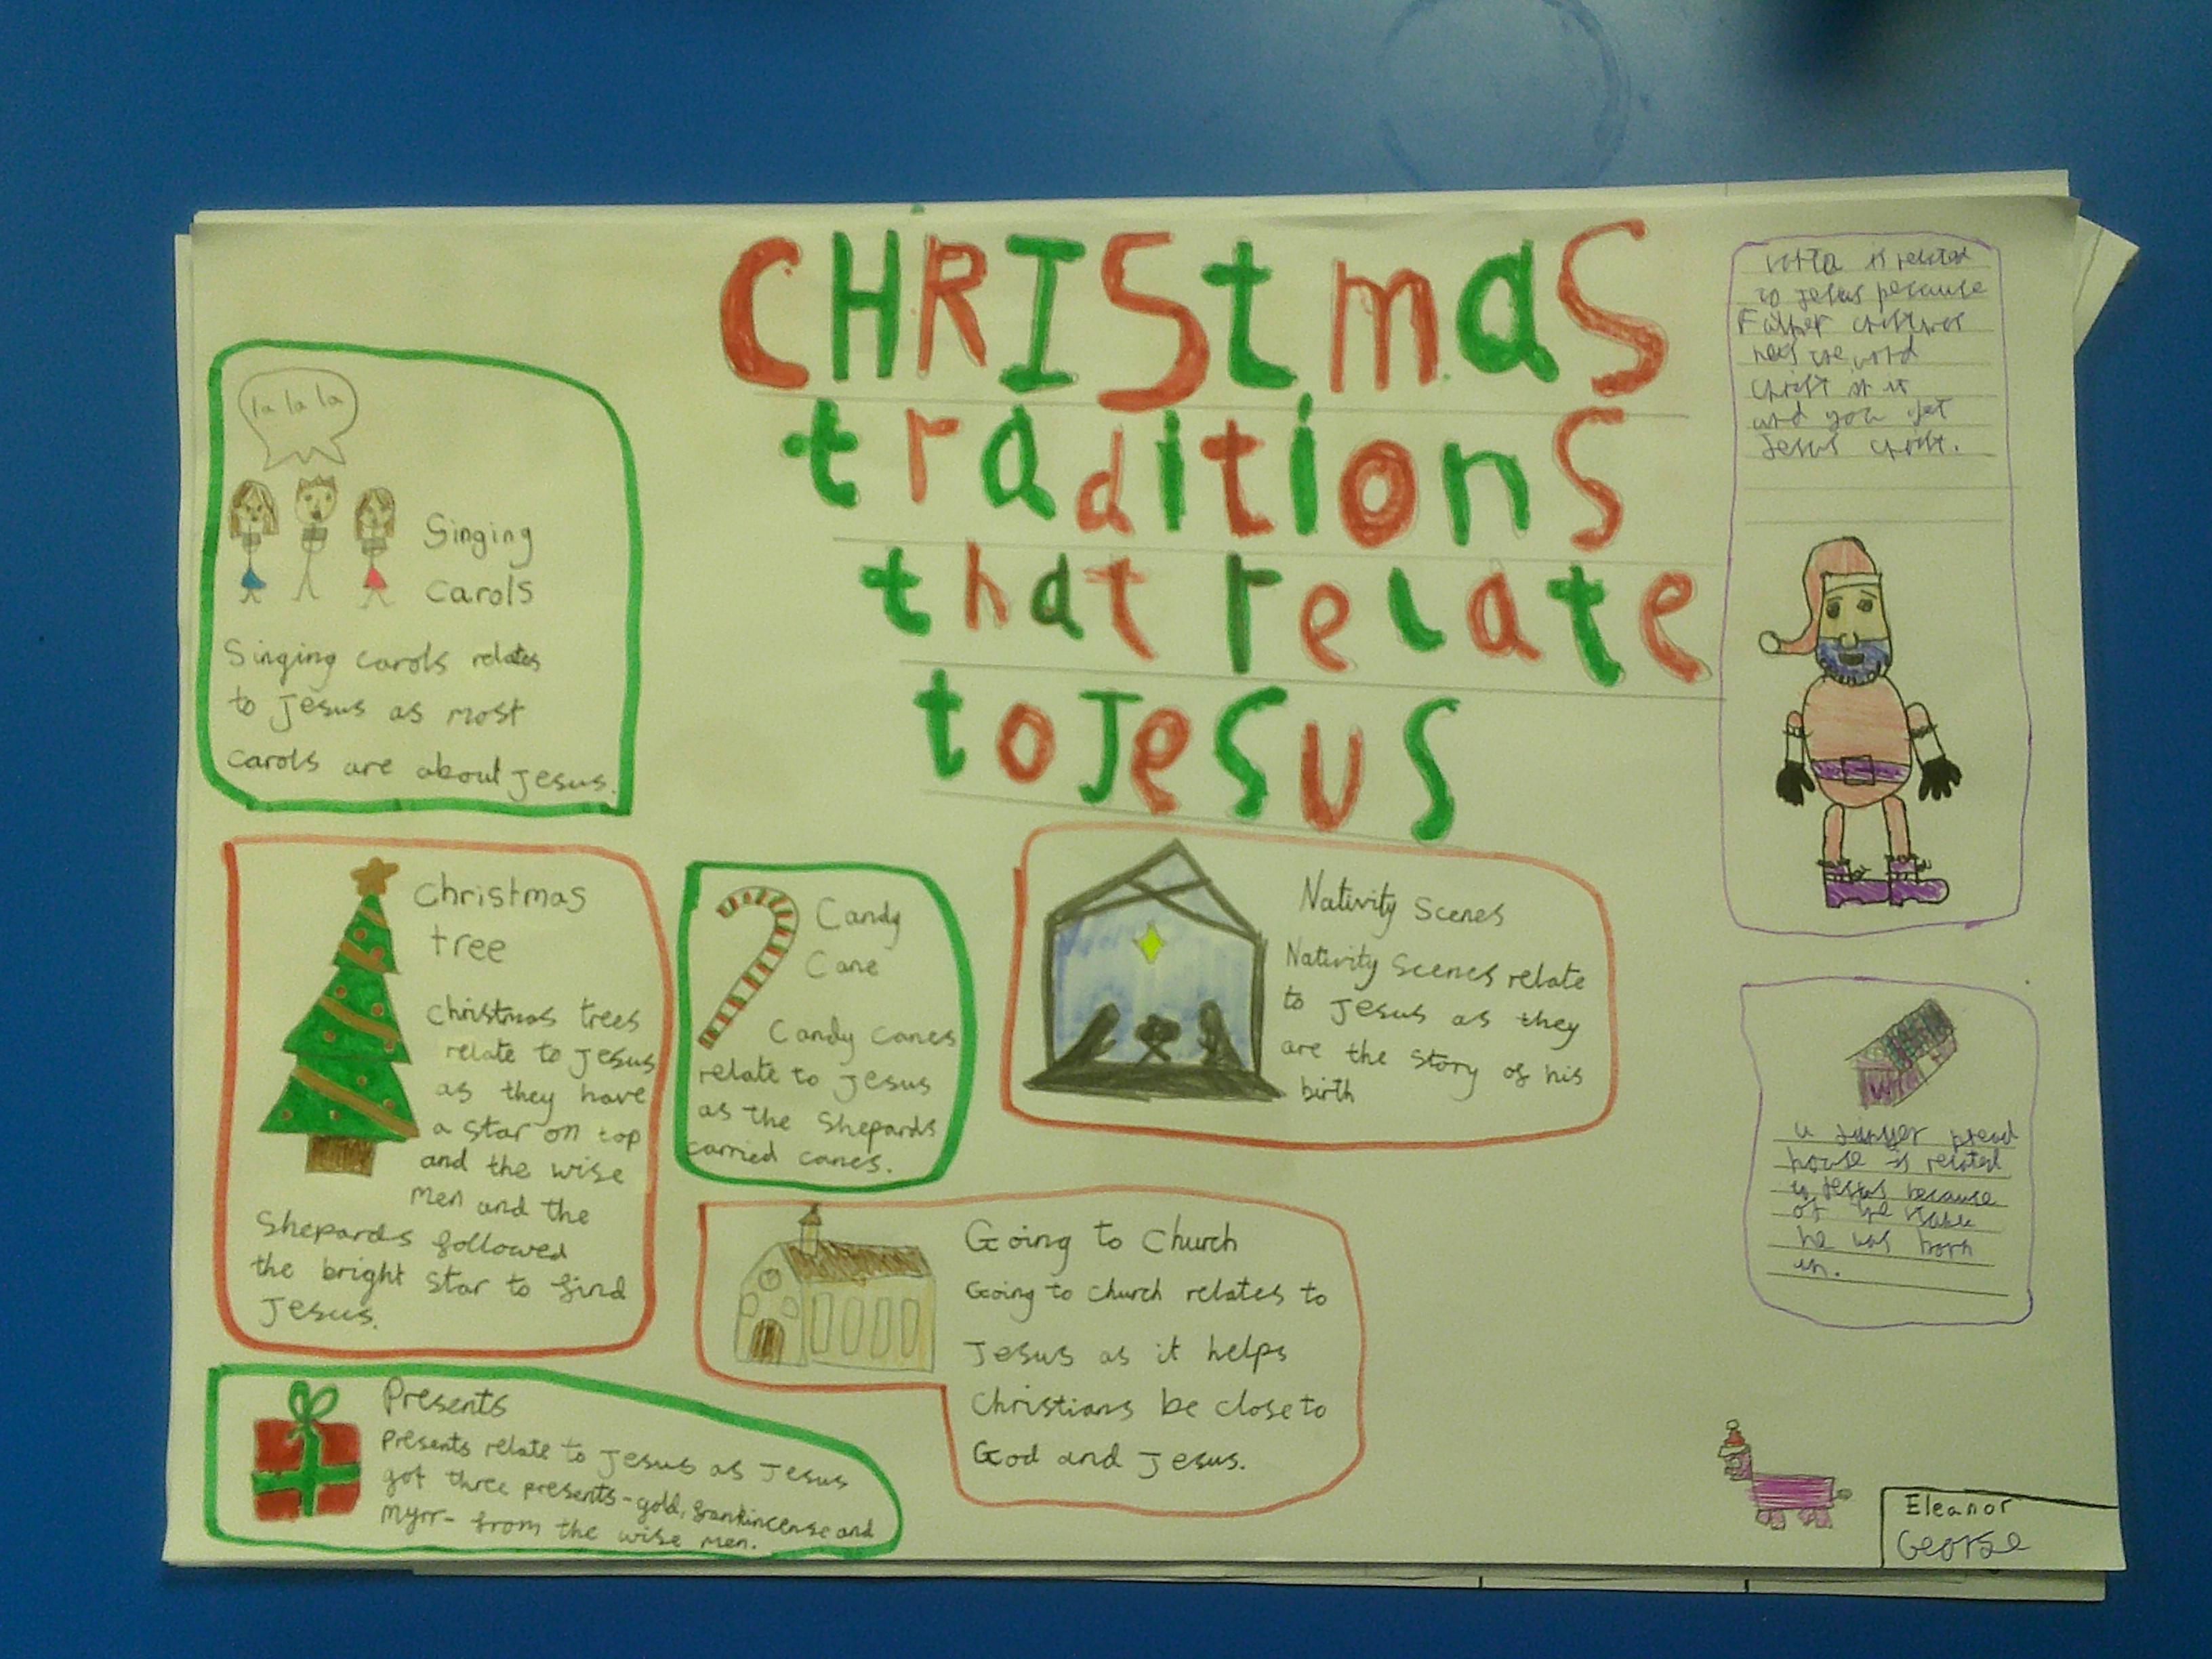 CHRIStmas
traditions
that relate
to Jesus
la la la
Singing
carols
Singing carols relates
to Jesus as most
carols are about Jesus.
Christmas
tree
Christmas trees
relate to Jesus
as they have
a star on top
and the wise
men and the
Shepards followed
the bright star to find
Jesus.
Presents
presents relate to Jesus as Jesus
got three presents - gold, frankincense and
myrr - from the wise men.
Candy
Cane
Candy canes
relate to Jesus
as the Shepards
carried canes.
Nativity Scenes
Nativity Scenes relate
to Jesus as they
are the story of his
birth
Going to Church
Going to church relates to
Jesus as it helps
Christians be close to
God and Jesus.
is related
to Jesus because
Father
has the word
Christ in it
and you get
Jesus Christ.
house is related
to Jesus because
of the stable
he was born
in.
Eleanor
George